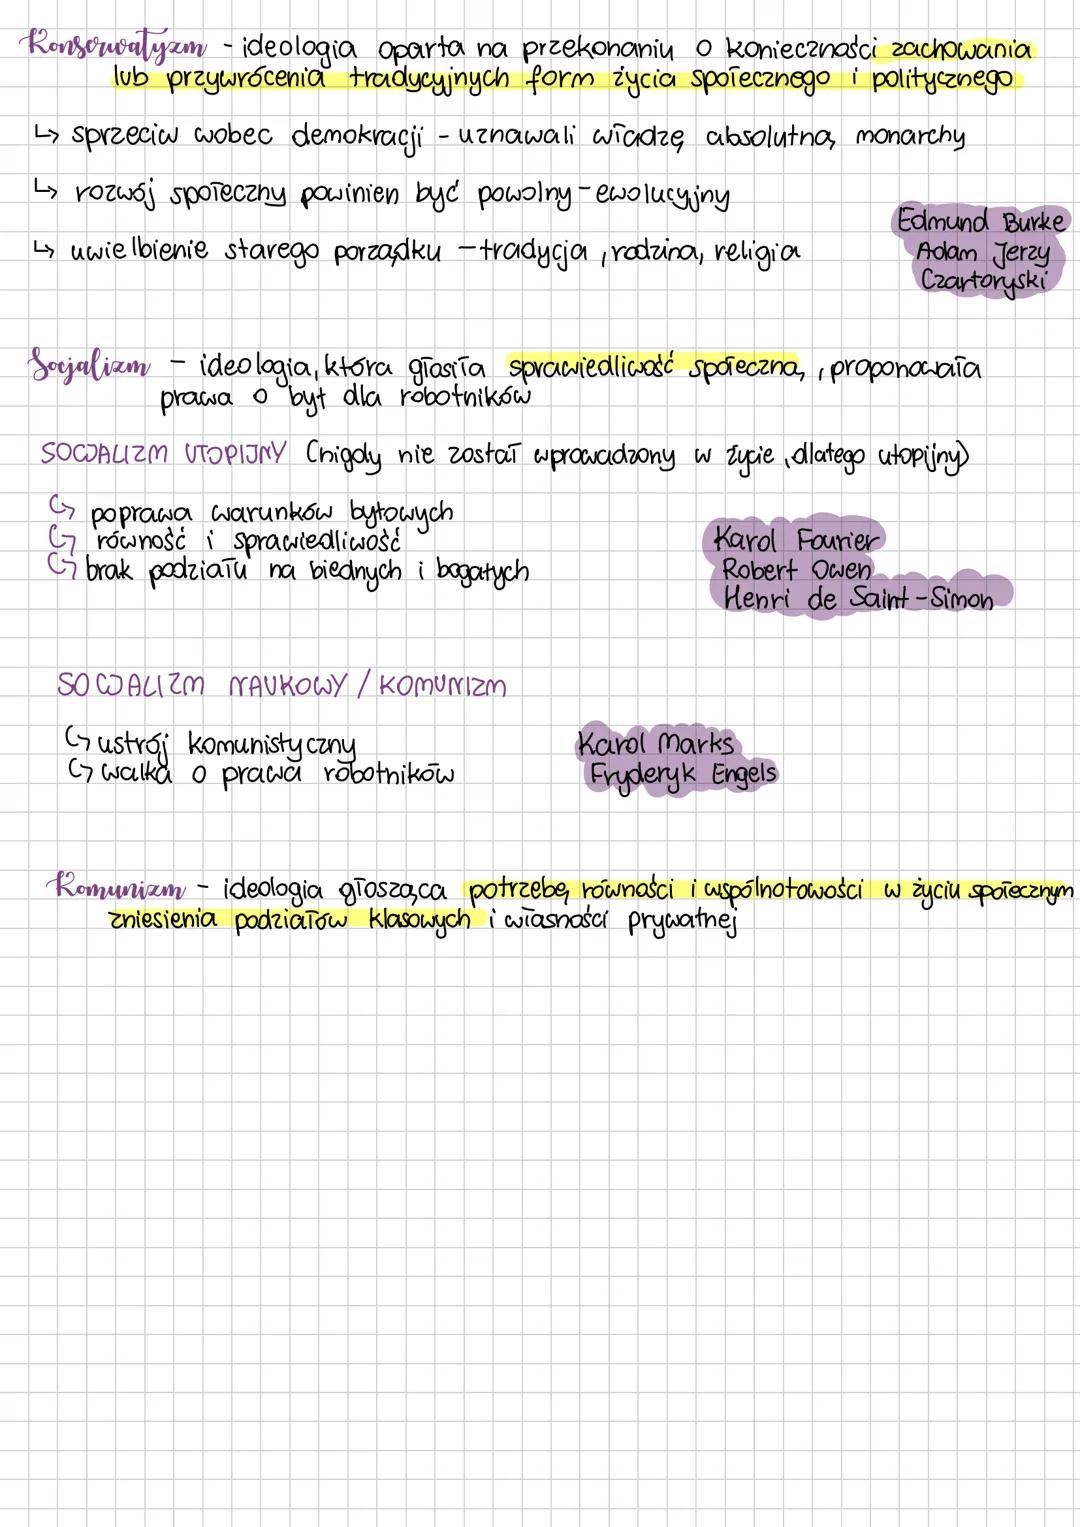 Konserwatyzm - ideologia oparta na przekonaniu o konieczności zachowania
lub przywrócenia tradycyjnych form życia społecznego i politycznego
↳ sprzeciw wobec demokracji - uznawali władzę absolutną monarchy
↳ rozwój społeczny powinien być powolny - ewolucyjny
↳ uwielbienie starego porządku - tradycja, rodzina, religia
Edmund Burke
Adam Jerzy
Czartoryski
Socjalizm - ideologia, która głosiła sprawiedliwość społeczną, proponowała
prawa o byt dla robotników
SOCJALIZM UTOPIJNY (nigdy nie został wprowadzony w życie, dlatego utopijny)
↳ poprawa warunków bytowych
↳ równość i sprawiedliwość
↳ brak podziału na biednych i bogatych
Karol Fourier
Robert Owen
Henri de Saint-Simon
SOCJALIZM NAUKOWY / KOMUNIZM
↳ ustrój komunistyczny
↳ walka o prawa robotników
Karol Marks
Fryderyk Engels
Komunizm - ideologia głosząca potrzebę równości i wspólnotowości w życiu społecznym
zniesienia podziałów klasowych i własności prywatnej